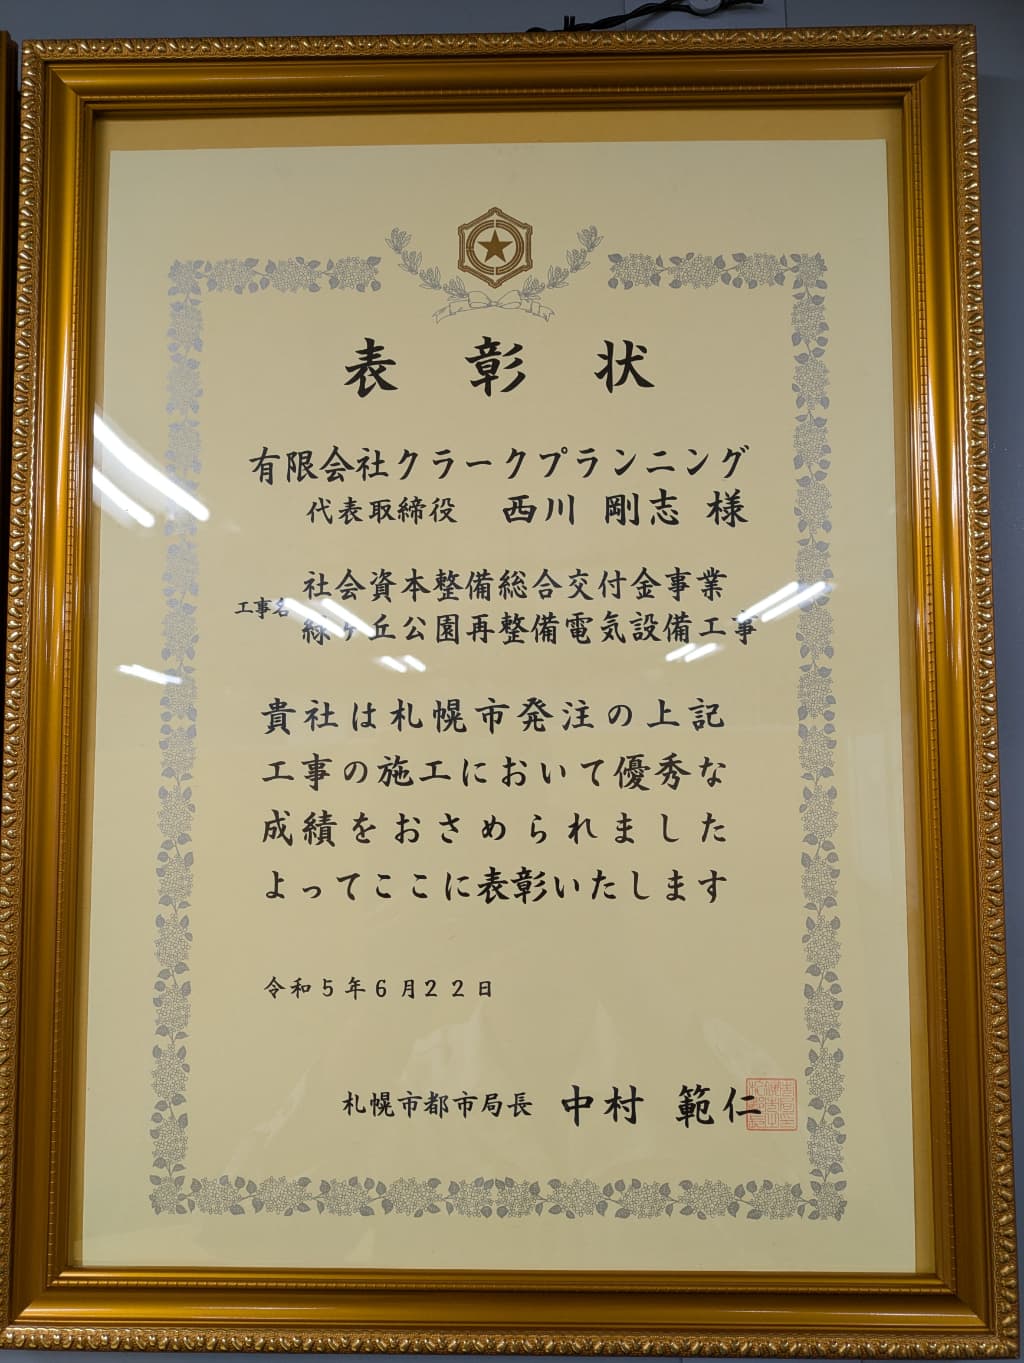 表彰状
有限会社クラークプランニング
代表取締役 西川 剛志 様
工事名
社会資本整備総合交付金事業
緑ヶ丘公園再整備電気設備工事
貴社は札幌市発注の上記
工事の施工において優秀な
成績をおさめられました
よってここに表彰いたします
令和5年6月22日
札幌市都市局長 中村 範仁